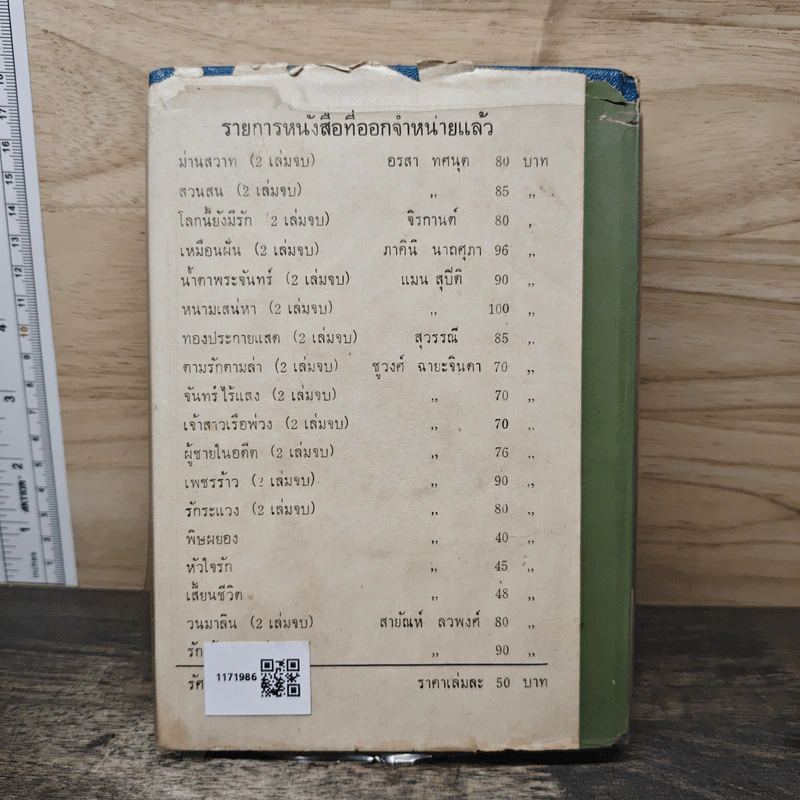 รายการหนังสือที่ออกจำหน่ายแล้ว
ม่านสวาท (2 เล่มจบ) อรสา ทศนุต 80 บาท
สวนสน (2 เล่มจบ) ,, 85 ,,
โลกนี้ยังมีรัก (2 เล่มจบ) จิรกานต์ 80 ,
เหมือนฝัน (2 เล่มจบ) ภาคินี นาถศุภา 96 ,,
น้ำตาพระจันทร์ (2 เล่มจบ) แมน สุปิติ 90 ,,
หนามเสน่หา (2 เล่มจบ) ,, 100 ,,
ทองประกายแสด (2 เล่มจบ) สุวรรณี 85 ,,
ตามรักตามล่า (2 เล่มจบ) ชูวงศ์ ฉายะจินดา 70 ,,
จันทร์ไร้แสง (2 เล่มจบ) ,, 70 ,,
เจ้าสาวเรือพ่วง (2 เล่มจบ) ,, 70 ,,
ผู้ชายในอดีต (2 เล่มจบ) ,, 76 ,,
เพชรร้าว (2 เล่มจบ) ,, 90 ,,
รักระแวง (2 เล่มจบ) ,, 80 ,,
พิษผยอง ,, 40 ,,
หัวใจรัก ,, 45 ,,
เสี้ยนชีวิต ,, 48 ,,
วนมาลิน (2 เล่มจบ) สายัณห์ ลวพงศ์ 80 ,,
,, 90 ,,
ราคาเล่มละ 50 บาท
1171986